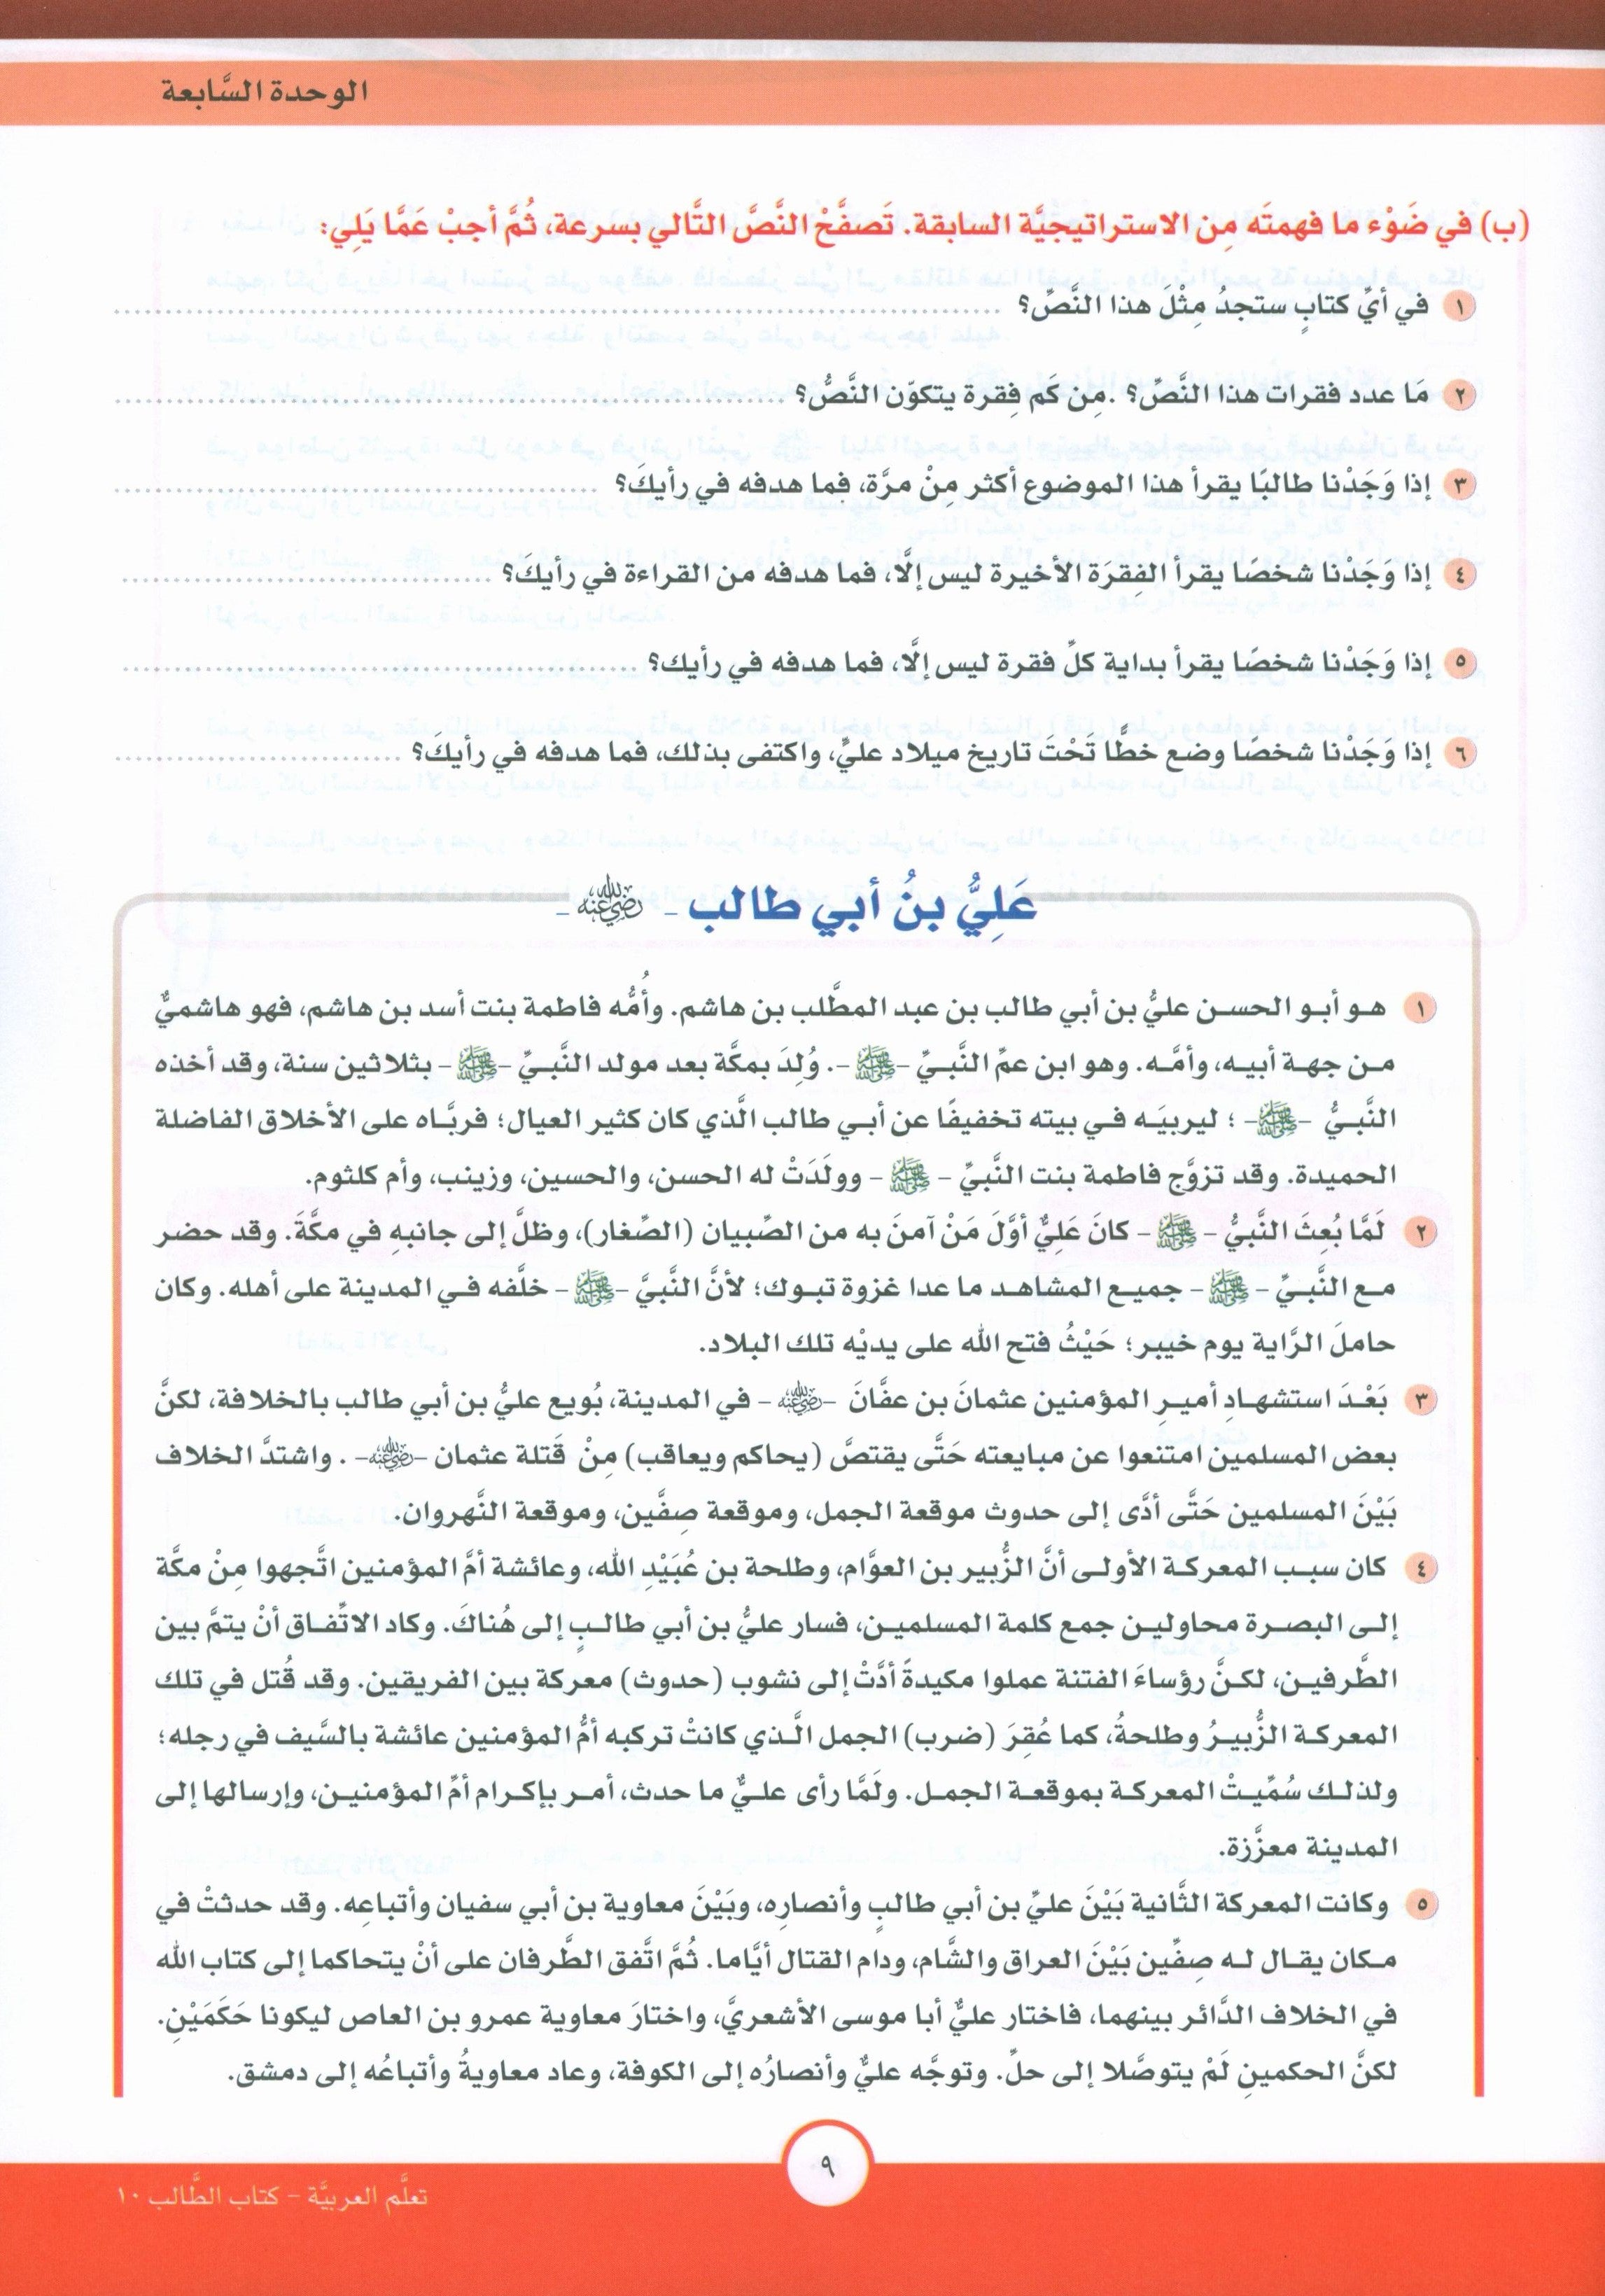 الوحدة السَّابعة
(ب) في ضَوْء ما فهمتَه مِن الاستراتيجيَّة السابقة. تَصفَّحْ النَّصَّ التَّالي بسرعة، ثُمَّ أجبْ عَمَّا يَلِي:
١ في أيِّ كتابٍ ستجدُ مِثْلَ هذا النَّصِّ؟
٢ مَا عدد فقرات هذا النَّصِّ؟ .مِن كَم فِقرة يتكوّن النَّصُّ؟
٣ إذا وَجَدْنا طالبًا يقرأ هذا الموضوع أكثر مِنْ مرَّة، فما هدفه في رأيكَ؟
٤ إذا وَجَدْنا شخصًا يقرأ الفِقرَة الأخيرة ليس إلَّا، فما هدفه من القراءة في رأيكَ؟
٥ إذا وَجَدْنا شخصًا يقرأ بداية كلِّ فقرة ليس إلَّا، فما هدفه في رأيك؟
٦ إذا وَجَدْنا شخصًا وضع خطًّا تَحْتَ تاريخ ميلاد عليٍّ، واكتفى بذلك، فما هدفه في رأيكَ؟
عَلِيُّ بنُ أبي طالب - رضي الله عنه -
١ هو أبو الحسن عليُّ بن أبي طالب بن عبد المطَّلب بن هاشم. وأُمُّه فاطمة بنت أسد بن هاشم، فهو هاشميٌّ
من جهة أبيه، وأمَّه. وهو ابن عمِّ النَّبيِّ -ﷺ-. وُلِدَ بمكَّة بعد مولد النَّبيِّ -ﷺ- بثلاثين سنة، وقد أخذه
النَّبيُّ -ﷺ- ؛ ليربيَه في بيته تخفيفًا عن أبي طالب الَّذي كان كثير العيال؛ فربَّاه على الأخلاق الفاضلة
الحميدة. وقد تزوَّج فاطمة بنت النَّبيِّ - ﷺ - وولَدَتْ له الحسن، والحسين، وزينب، وأم كلثوم.
٢ لَمَّا بُعِثَ النَّبيُّ - ﷺ - كانَ عَلِيٌّ أوَّلَ مَنْ آمنَ به من الصِّبيان (الصِّغار)، وظلَّ إلى جانبهِ في مكَّةَ. وقد حضر
مع النَّبيِّ - ﷺ - جميع المشاهد ما عدا غزوة تبوك؛ لأنَّ النَّبيَّ -ﷺ- خلَّفه في المدينة على أهله. وكان
حاملَ الرَّاية يوم خيبر؛ حَيْثُ فتح الله على يديْه تلك البلاد.
٣ بَعْدَ استشهادِ أميرِ المؤمنين عثمانَ بن عفَّانَ -رضي الله عنه- في المدينة، بُويع عليُّ بن أبي طالب بالخلافة، لكنَّ
بعض المسلمين امتنعوا عن مبايعته حَتَّى يقتصَّ (يحاكم ويعاقب) مِنْ قَتلة عثمان -رضي الله عنه- . واشتدَّ الخلاف
بَيْنَ المسلمين حَتَّى أدَّى إلى حدوث موقعة الجمل، وموقعة صِفَّين، وموقعة النَّهروان.
٤ كان سبب المعركة الأولى أنَّ الزُّبير بن العوَّام، وطلحة بن عُبَيْدِ الله، وعائشة أمَّ المؤمنين اتَّجهوا مِنْ مكَّة
إلى البصرة محاولين جمع كلمة المسلمين، فسار عليُّ بن أبي طالبٍ إلى هُناكَ. وكاد الاتِّفاق أنْ يتمَّ بين
الطَّرفين، لكنَّ رؤساءَ الفتنة عملوا مكيدةً أدَّتْ إلى نشوب (حدوث) معركة بين الفريقين. وقد قُتل في تلك
المعركة الزُّبيرُ وطلحةُ، كما عُقِرَ (ضرب) الجمل الَّذي كانتْ تركبه أمُّ المؤمنين عائشة بالسَّيف في رجله؛
ولذلك سُمِّيتْ المعركة بموقعة الجمل. ولَمَّا رأى عليٌّ ما حدث، أمر بإكرام أمِّ المؤمنين، وإرسالها إلى
المدينة معزَّزة.
٥ وكانت المعركة الثَّانية بَيْنَ عليِّ بن أبي طالبٍ وأنصارِه، وبَيْنَ معاوية بن أبي سفيان وأتباعِه. وقد حدثتْ في
مكان يقال له صِفِّين بَيْنَ العراق والشَّام، ودام القتال أيَّاما. ثُمَّ اتَّفق الطَّرفان على أنْ يتحاكما إلى كتاب الله
في الخلاف الدَّائر بينهما، فاختار عليٌّ أبا موسى الأشعريَّ، واختارَ معاوية عمرو بن العاص ليكونا حَكَمَيْنِ.
لكنَّ الحكمينِ لَمْ يتوصَّلا إلى حلٍّ. وتوجَّه عليٌّ وأنصارُه إلى الكوفة، وعاد معاويةُ وأتباعُه إلى دمشق.
٩
تعلَّم العربيَّة - كتاب الطَّالب ١٠